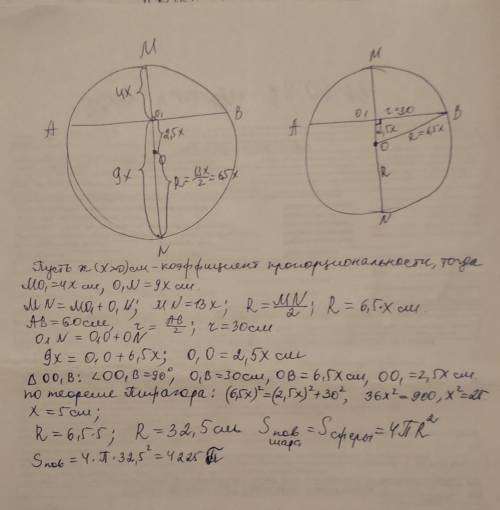 M
4x
A
O₁
B
2,5x
9x
O
R = 13x/2 = 6,5x
N
M
O₁
r=30
B
A
2,5x
O
R=6,5x
R
N
Пусть x (x>0) см - коэффициент пропорциональности, тогда
MO₁=4x см, O₁N=9x см.
MN=MO₁+O₁N; MN=13x; R = MN/2; R=6,5·x см.
AB=60см, r = AB/2; r=30см
O₁N=O₁O+ON
9x=O₁O+6,5x; O₁O=2,5x см
△OO₁B: ∠OO₁B=90°, O₁B=30см, OB=6,5x см, OO₁=2,5x см
по теореме Пифагора: (6,5x)²=(2,5x)²+30², 36x²=900, x²=25
x=5см;
R=6,5·5; R=32,5см S пов шара = S сферы = 4πR²
S пов = 4·π·32,5²=4225π